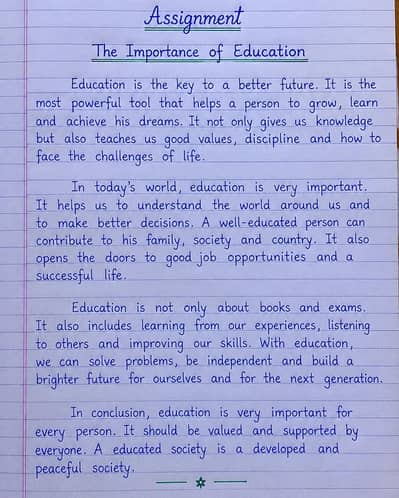 Assignment
The Importance of Education
Education is the key to a better future. It is the
most powerful tool that helps a person to grow, learn
and achieve his dreams. It not only gives us knowledge
but also teaches us good values, discipline and how to
face the challenges of life.
In today's world, education is very important.
It helps us to understand the world around us and
to make better decisions. A well-educated person can
contribute to his family, society and country. It also
opens the doors to good job opportunities and a
successful life.
Education is not only about books and exams.
It also includes learning from our experiences, listening
to others and improving our skills. With education,
we can solve problems, be independent and build a
brighter future for ourselves and for the next generation.
In conclusion, education is very important for
every person. It should be valued and supported by
everyone. A educated society is a developed and
peaceful society.